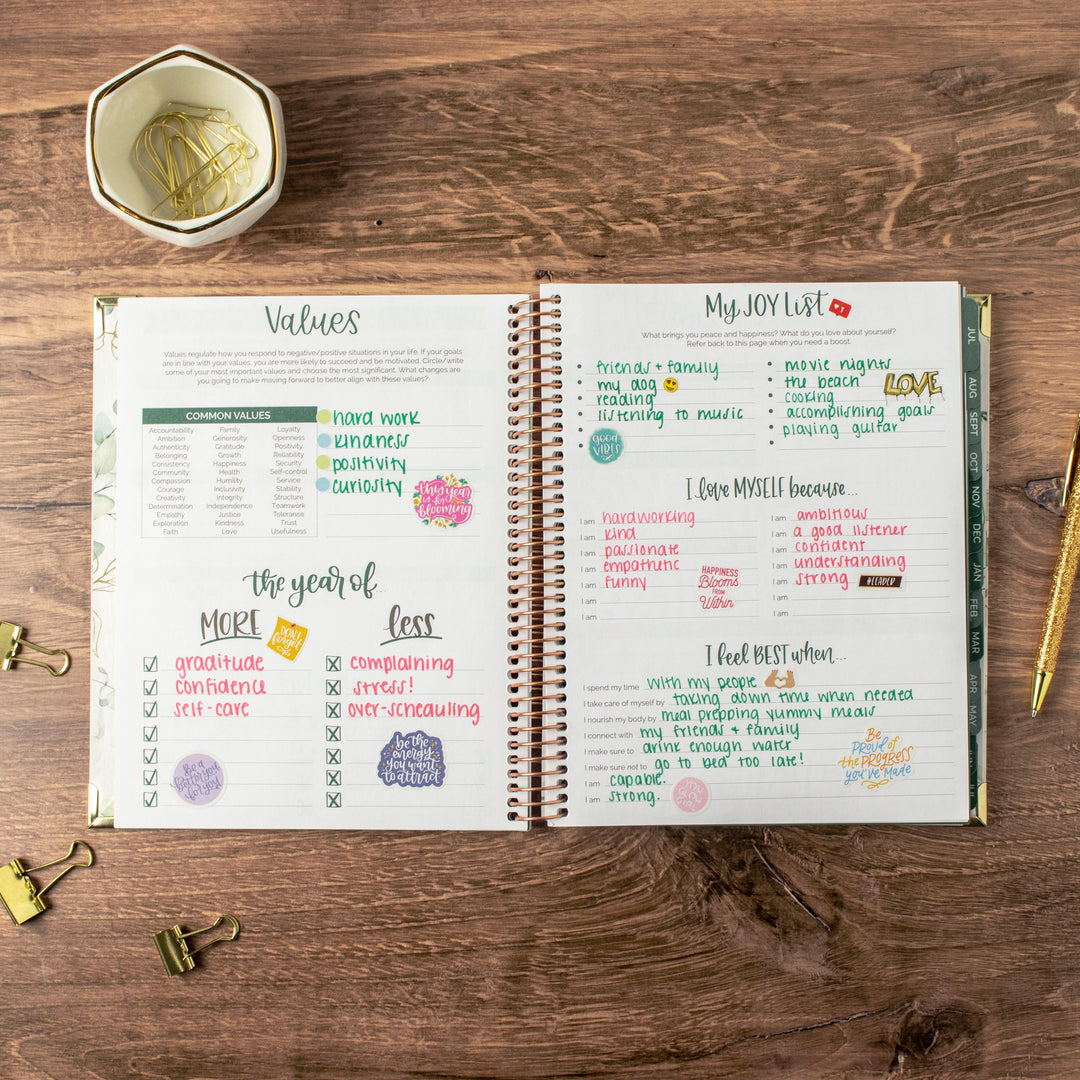 Values
Values regulate how you respond to negative/positive situations in your life. If your goals
are in line with your values, you are more likely to succeed and be motivated. Circle/write
some of your most important values and choose the most significant. What changes are
you going to make moving forward to better align with these values?
COMMON VALUES
Accountability Family Loyalty
Ambition Generosity Openness
Authenticity Gratitude Positivity
Belonging Growth Reliability
Consistency Happiness Security
Community Health Self-control
Compassion Humility Service
Courage Inclusivity Stability
Creativity Integrity Structure
Determination Independence Teamwork
Empathy Justice Tolerance
Exploration Kindness Trust
Faith Love Usefulness
hard work
kindness
positivity
curiosity
this year
is for
blooming
the year of...
MORE
DON'T
forget
less
graditude
confidence
self-care
complaining
stress!
over-scheduling
be a
better you
for you
be the
energy
you want
to attract
My JOY List
1
What brings you peace and happiness? What do you love about yourself?
Refer back to this page when you need a boost.
friends + family
my dog
reading
listening to music
GOOD
VIBES
movie nights
the beach
cooking
accomplishing goals
playing guitar
LOVE
I love MYSELF because...
I am hardworking
I am kind
I am passionate
I am empathetic
I am funny
I am
I am
HAPPINESS
Blooms
FROM
Within
I am ambitious
I am a good listener
I am confident
I am understanding
I am strong
I am
I am
#LEADER
I feel BEST when...
I spend my time with my people
I take care of myself by taking down time when needed
I nourish my body by meal prepping yummy meals
I connect with my friends + family
I make sure to drink enough water
I make sure not to go to bed too late!
I am capable.
I am strong.
Be
PROUD of
the PROGRESS
you've MADE
JUL
AUG
SEPT
OCT
NOV
DEC
JAN
FEB
MAR
APR
MAY